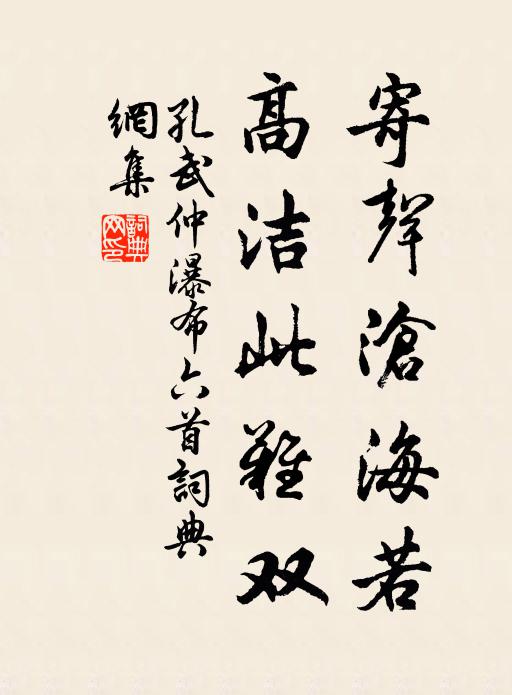 寄聲滄海若
高洁此難双
孔武仲瀑布六首詞典
網集
詞典網印